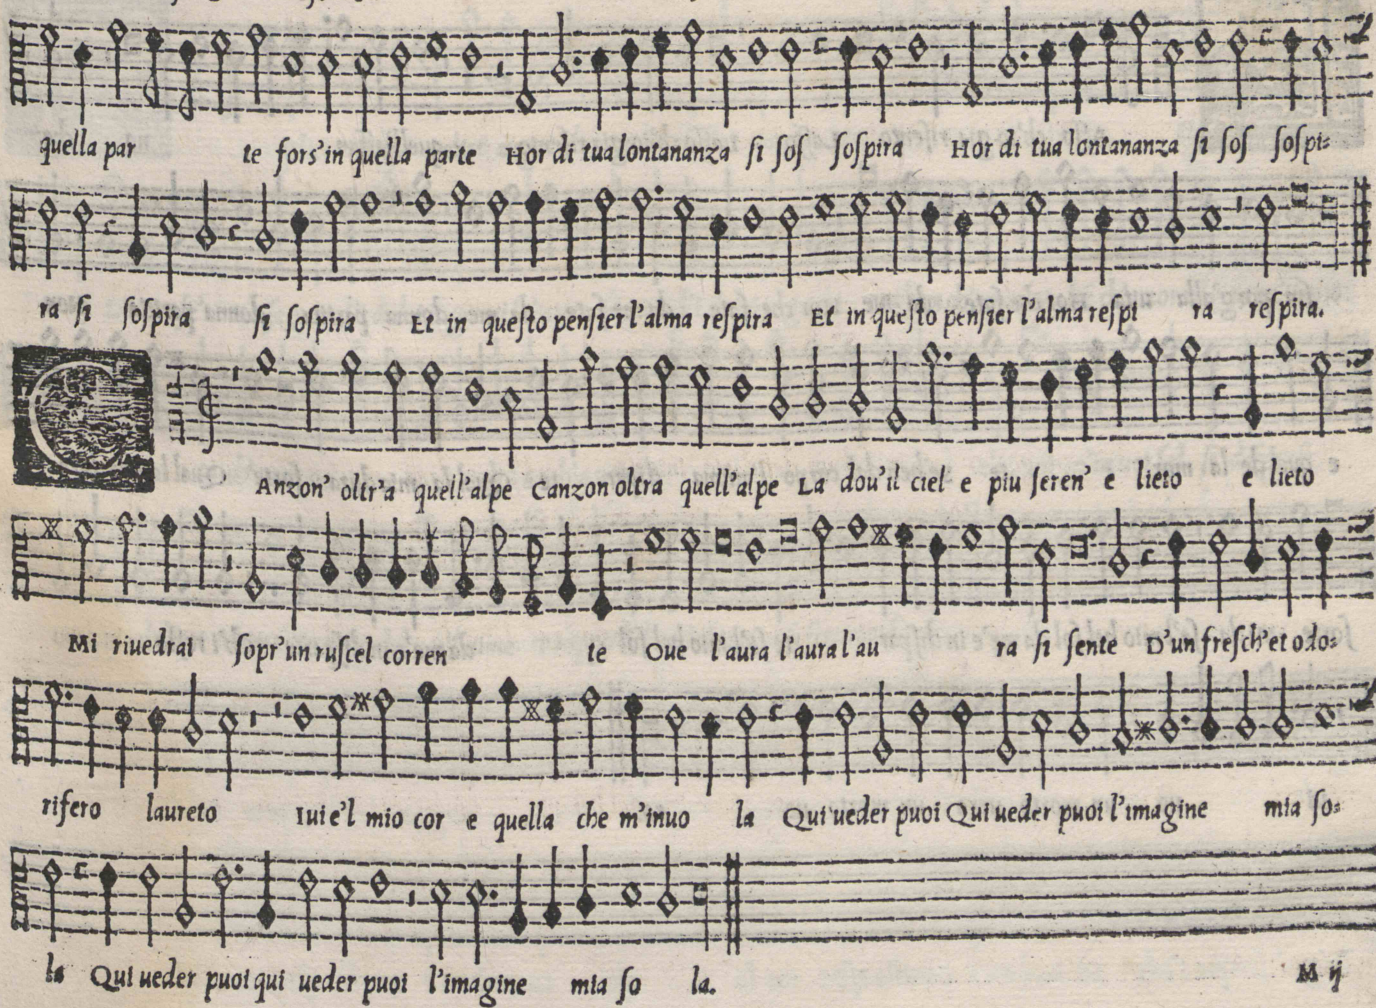 quella par te fors'in quella parte Hor di tua lontananza si sos sospira Hor di tua lontananza si sos sospi=
ra si sospira si sospira Et in questo pensier l'alma respira Et in questo pensier l'alma respi ra respira.
C Anzon' oltr'a quell'alpe Canzon oltra quell'alpe La dou'il ciel e piu seren' e lieto e lieto
Mi riuedrai sopr'un ruscel corren te Oue l'aura l'aura l'au ra si sente D'un fresch'et odo=
rifero laureto Iui e'l mio cor e quella che m'inuo la Qui ueder puoi Qui ueder puoi l'imagine mia so=
la Qui ueder puoi qui ueder puoi l'imagine mia so la.
M ij